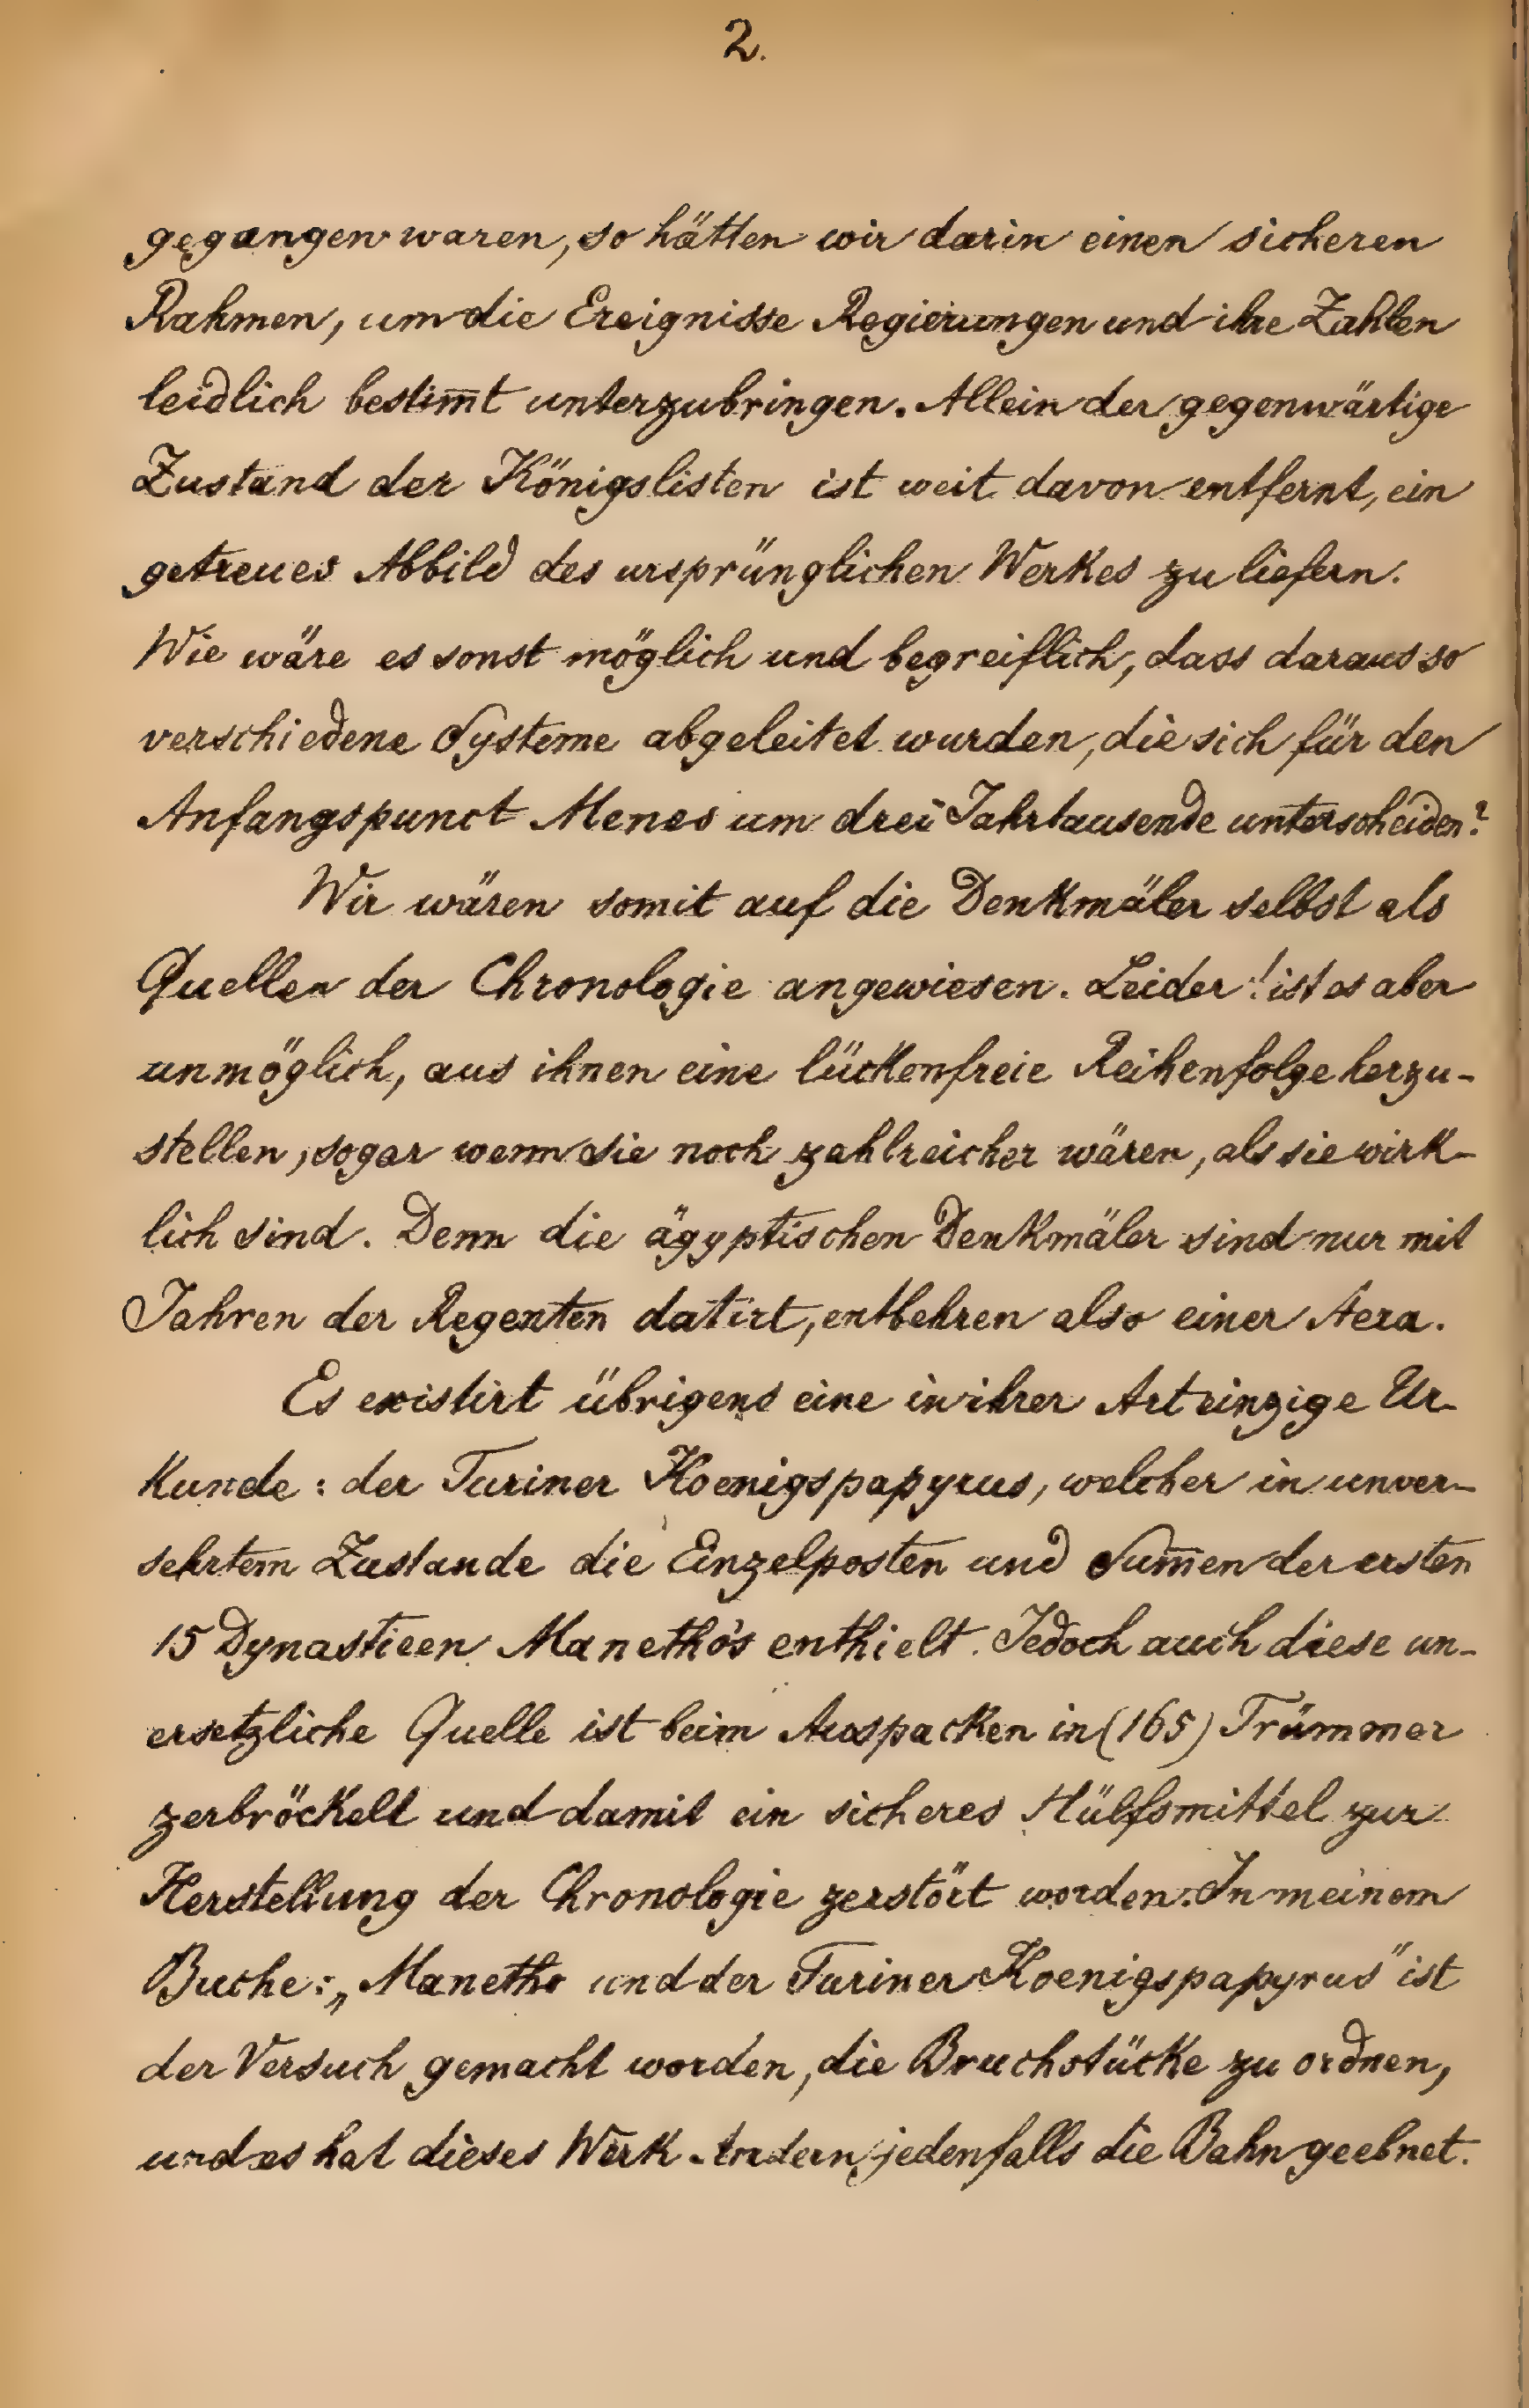 2.
gegangen waren, so hätten wir darin einen sicheren
Rahmen, um die Ereignisse Regierungen und ihre Zahlen
leidlich bestim̅t unterzubringen. Allein der gegenwärtige
Zustand der Königslisten ist weit davon entfernt, ein
getreues Abbild des ursprünglichen Werkes zu liefern.
Wie wäre es sonst möglich und begreiflich, dass daraus so
verschiedene Systeme abgeleitet wurden, die sich für den
Anfangspunct Menes um drei Jahrtausende unterscheiden?
Wir wären somit auf die Denkmäler selbst als
Quellen der Chronologie angewiesen. Leider! ist es aber
unmöglich, aus ihnen eine lückenfreie Reihenfolge herzu-
stellen, sogar wenn sie noch zahlreicher wären, als sie wirk-
lich sind. Denn die ägyptischen Denkmäler sind nur mit
Jahren der Regenten datirt, entbehren also einer Aera.
Es existirt übrigens eine in ihrer Art einzige Ur-
kunde: der Turiner Koenigspapyrus, welcher in unver-
sehrtem Zustande die Einzelposten und Sum̅en der ersten
15 Dynastieen Manetho's enthielt. Jedoch auch diese un-
ersetzliche Quelle ist beim Auspacken in (165) Trümmer
zerbröckelt und damit ein sicheres Hülfsmittel zur
Herstellung der Chronologie zerstört worden. In meinem
Buche: „Manetho und der Turiner Koenigspapyrus" ist
der Versuch gemacht worden, die Bruchstücke zu ordnen,
und es hat dieses Werk Andern jedenfalls die Bahn geebnet.